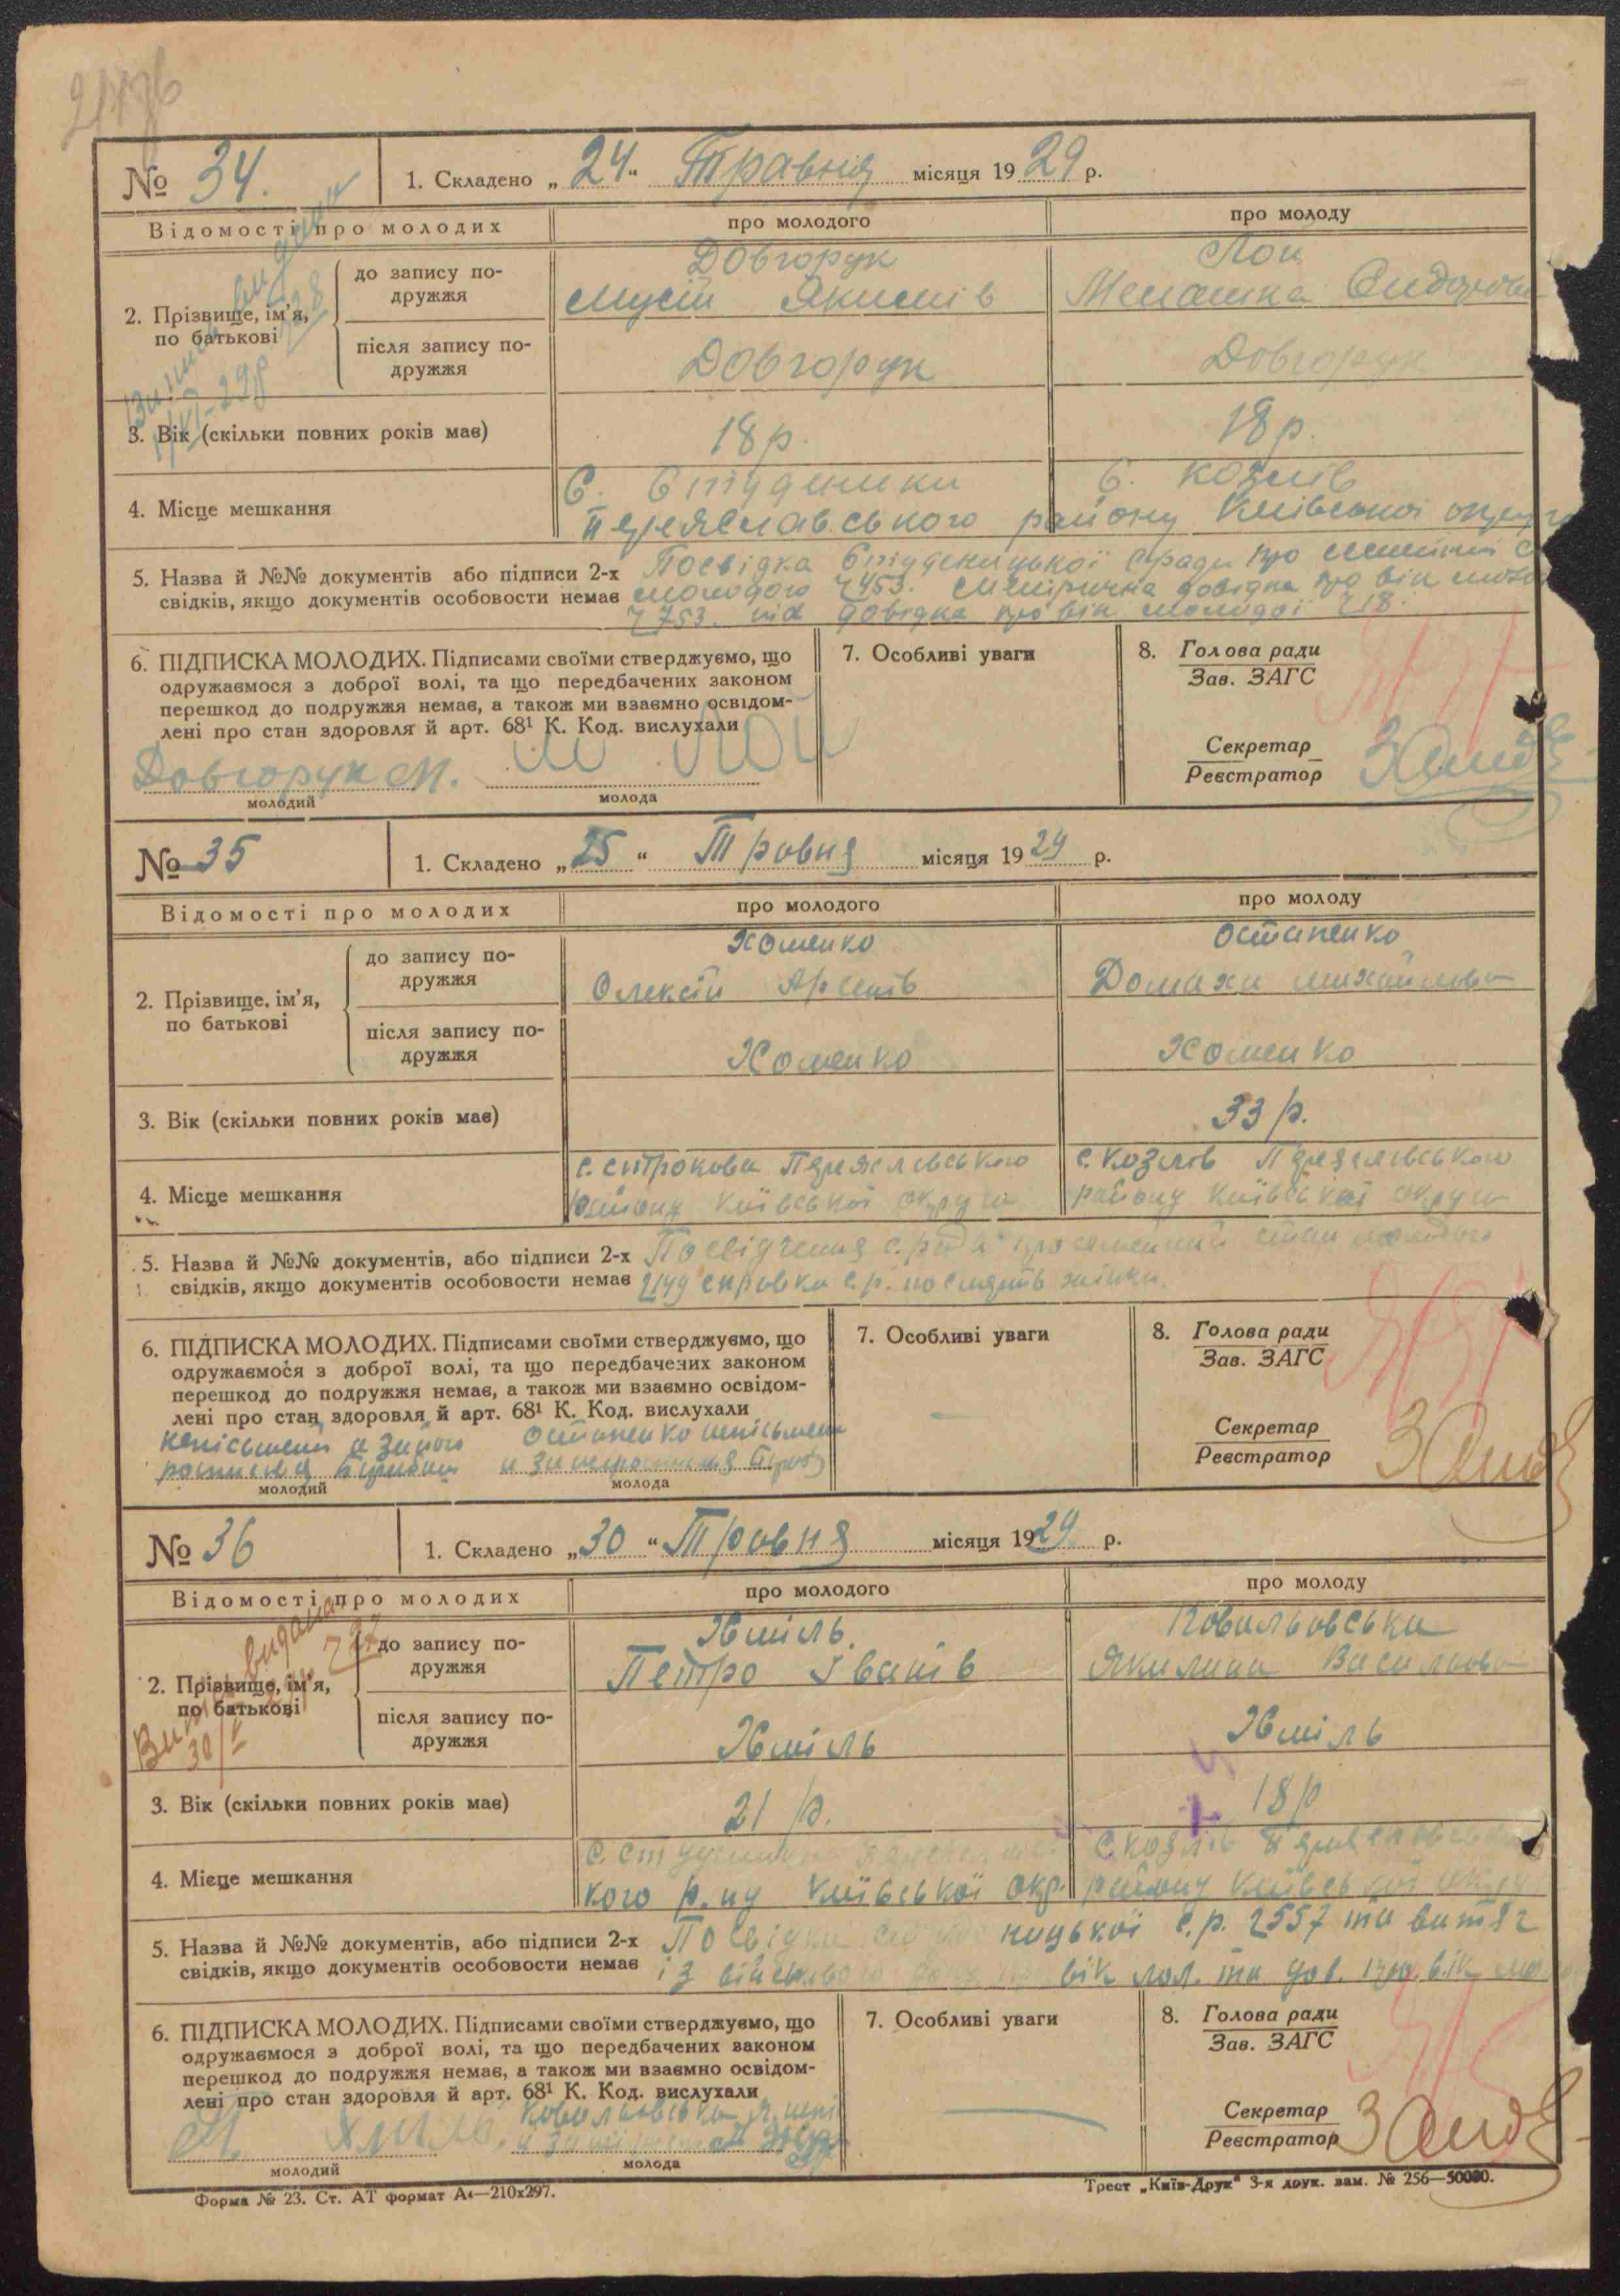 № 34. 1. Складено „24“ Травня місяця 1929 р.
Відомості про молодих про молодого про молоду
2. Прізвище, ім'я, по батькові
до запису подружжя
Довгорук
Мусій Якимів
Лой
Меланка Сидорова
після запису подружжя
Довгорук Довгорук
3. Вік (скільки повних років має) 18 р. 18 р.
4. Місце мешкання
с. Студеники с. Козлів
Переяславського району Київської округи
5. Назва й №№ документів або підписи 2-х Посвідка Студеницької с/ради про
свідків, якщо документів особовости немає молодого №453. Метрична довідка про вік
№753. довідка про вік молодої №18.
6. ПІДПИСКА МОЛОДИХ. Підписами своїми стверджуємо, що
одружаємося з доброї волі, та що передбачених законом
перешкод до подружжя немає, а також ми взаємно освідом-
лені про стан здоровля й арт. 68¹ К. Код. вислухали
Довгорук М. М Лой
молодий молода
7. Особливі уваги
8. Голова ради
Зав. ЗАГС
Секретар
Реєстратор
№ 35 1. Складено „25“ Травня місяця 1929 р.
Відомості про молодих про молодого про молоду
2. Прізвище, ім'я,
по батькові
до запису по-
дружжя
Хоменко
Олексій Арсенів
Остапенко
Домаха Михайлова
після запису по-
дружжя
Хоменко Хоменко
3. Вік (скільки повних років має) 33 р.
4. Місце мешкання
с. Строкова Переяславського
району Київської округи
с. Козлів Переяславського
району Київської округи
5. Назва й №№ документів, або підписи 2-х Посвідчення с. ради про семейний стан молодого
свідків, якщо документів особовости немає справка с.р. по смерть жінки.
6. ПІДПИСКА МОЛОДИХ. Підписами своїми стверджуємо, що
одружаємося з доброї волі, та що передбачених законом
перешкод до подружжя немає, а також ми взаємно освідом-
лені про стан здоровля й арт. 68¹ К. Код. вислухали
неписьмен а за його Остапенко неписьмен
молодий молода
7. Особливі уваги
8. Голова ради
Зав. ЗАГС
Секретар
Реєстратор
№ 36 1. Складено „30“ Травня місяця 1929 р.
Відомості про молодих про молодого про молоду
2. Прізвище, ім'я,
по батькові
до запису по-
дружжя
Хміль
Петро Іванів
Ковальовська
Якилина Васильова
після запису по-
дружжя
Хміль Хміль
3. Вік (скільки повних років має) 21 р. 18 р
4. Місце мешкання
с. Студеники
кого р-ну Київської окр.
с. Козлів
району Київської округи
5. Назва й №№ документів, або підписи 2-х Посвідка ницької с.р. №557 та витяг
свідків, якщо документів особовости немає із військового вік мол. та дов. про вік
6. ПІДПИСКА МОЛОДИХ. Підписами своїми стверджуємо, що
одружаємося з доброї волі, та що передбачених законом
перешкод до подружжя немає, а також ми взаємно освідом-
лені про стан здоровля й арт. 68¹ К. Код. вислухали
Хміль. Ковальовська
молодий молода
7. Особливі уваги
8. Голова ради
Зав. ЗАГС
Секретар
Реєстратор
Форма № 23. Ст. АТ формат А₄—210х297.
Трест „Київ-Друк“ 3-я друк. зам. № 256—50000.